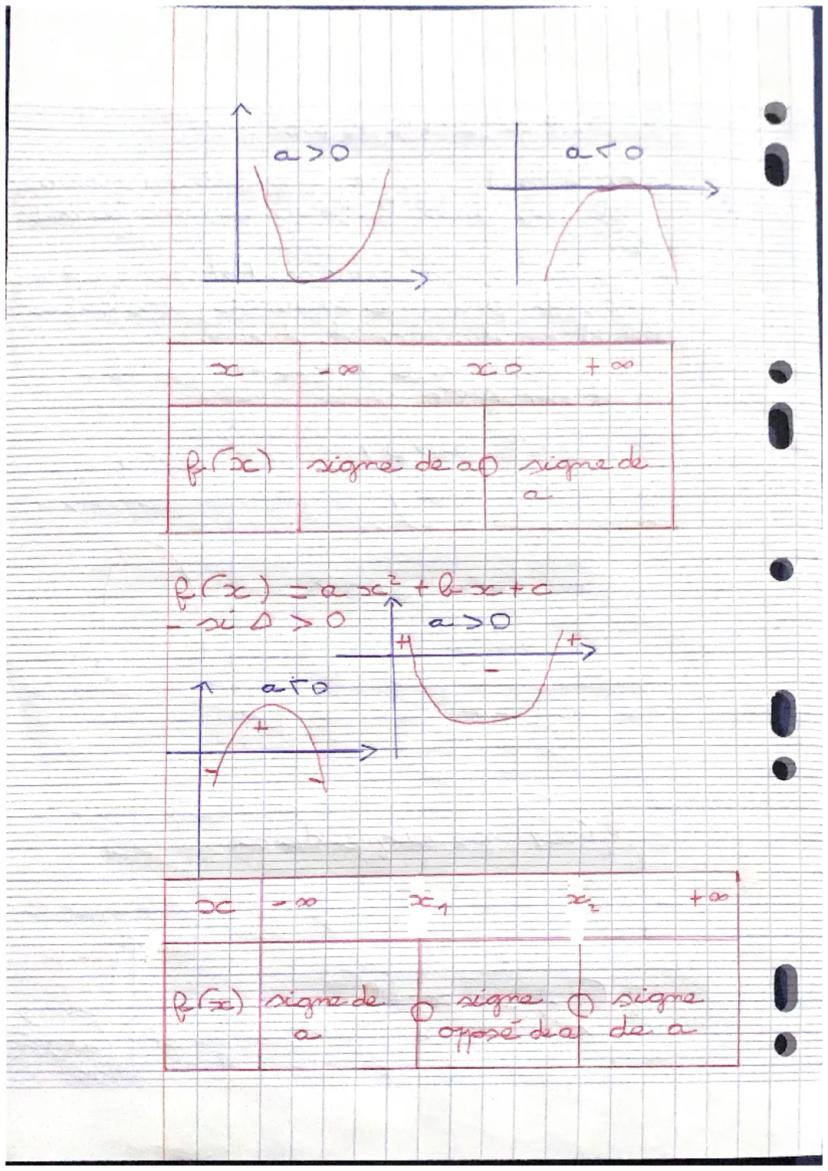 a > 0
a < 0
x -∞ x0 +∞
f(x) signe de a 0 signe de
a
f(x) = ax² + bx + c
- si Δ > 0
a > 0
+ +
-
a < 0
+
- -
x -∞ x₁ x₂ +∞
f(x) signe de 0 signe 0 signe
a opposé de a de a